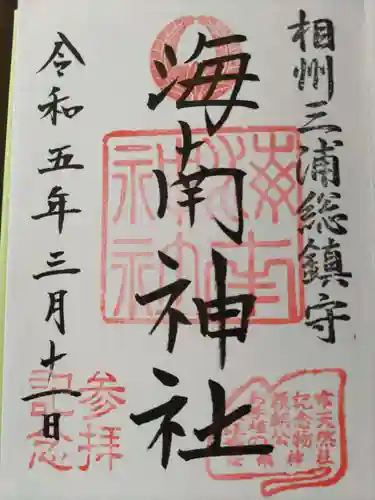 相州三浦総鎮守
海南神社
令和五年三月十一日
海南神社
参拝
記念